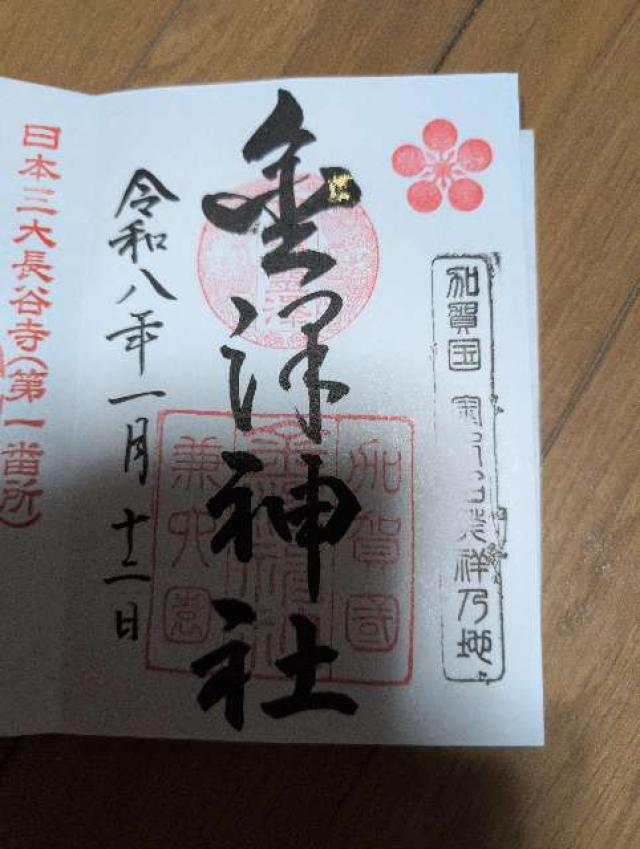 加賀国
発祥乃地
金澤神社
加賀国
兼六園
令和八年一月十二日
日本三大長谷寺(第一番所)